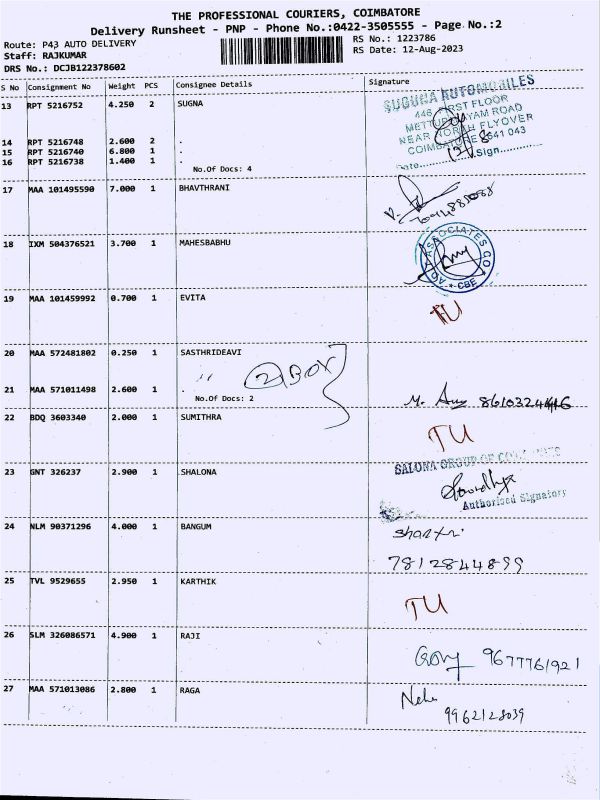 THE PROFESSIONAL COURIERS, COIMBATORE
Delivery Runsheet - PNP - Phone No.:0422-3505555 - Page No.:2
Route: P43 AUTO DELIVERY
RS No.: 1223786
Staff: RAJKUMAR
RS Date: 12-Aug-2023
DRS No.: DCJB122378602
S No Consignment No Weight PCS Consignee Details Signature
13 RPT 5216752 4.250 2 SUGNA
SUGUNA AUTOMOBILES
446 FIRST FLOOR
METTUPALAYAM ROAD
NEAR NORTH FLYOVER
COIMBATORE 641 043
Date Sign
14 RPT 5216748 2.600 2 .
15 RPT 5216740 6.800 1 .
16 RPT 5216738 1.400 1 .
No.Of Docs: 4
17 MAA 101495590 7.000 1 BHAVTHRANI
18 IXM 504376521 3.700 1 MAHESBABHU
ASSOCIATES
CBE
19 MAA 101459992 0.700 1 EVITA
TU
20 MAA 572481802 0.250 1 SASTHRIDEAVI
" 2 BOX
21 MAA 571011498 2.600 1 .
No.Of Docs: 2
22 BDQ 3603340 2.000 1 SUMITHRA
TU
23 GNT 326237 2.900 1 SHALONA
SALONA GROUP OF
Authorised Signatory
24 NLM 90371296 4.000 1 BANGUM
7812844899
25 TVL 9529655 2.950 1 KARTHIK
TU
26 SLM 326086571 4.900 1 RAJI
9677761921
27 MAA 571013086 2.800 1 RAGA
9962128039